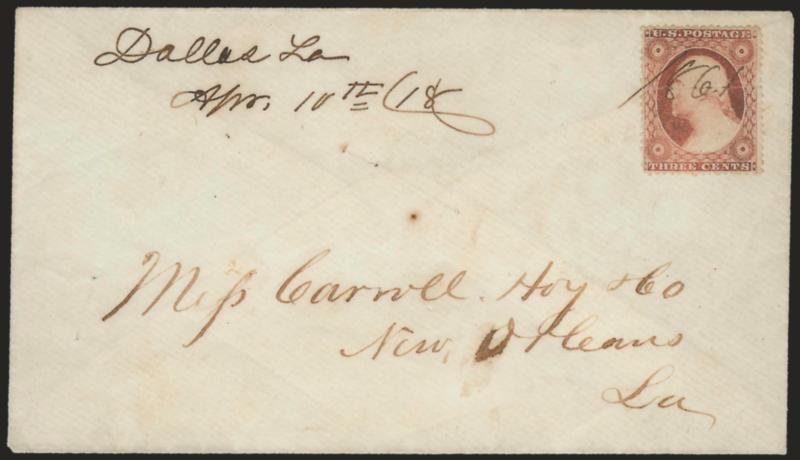 Dallas La
Apr. 10TH /18
U.S. POSTAGE
1861
THREE CENTS
Mess Carroll. Hoy & Co
New Orleans
La